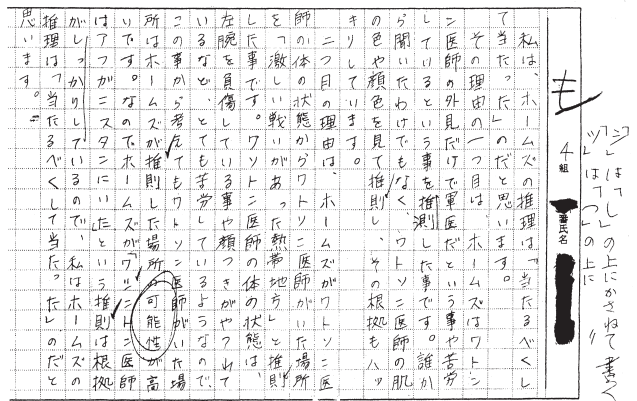 「シ」は「し」の上にかさねて書く
「ツ」は「つ」の上に 〃
も
4組
番氏名
私は、ホームズの推理は「当たるべくし
て当たった」のだと思います。
その理由の一つ目は、ホームズはワトソ
ン医師の外見だけで軍医だという事や苦労
しているという事を推測した事です。誰か
ら聞いたわけでもなく、ワトソン医師の肌
の色や顔色を見て推則し、その根拠もハッ
キリしています。
二つ目の理由は、ホームズがワトソン医
師の体の状態からワトソン医師がいた場所
を「激しい戦いがあった熱帯地方」と推則
した事です。ワソトン医師の体の状態は、
左腕を負傷している事や顔つきがやつれて
いるなど、とても苦労しているようなので、
この事から考えてもワトソン医師がいた場
所はホームズが推則した場所の可能性が高
いです。なのでホームズが「ワットン医師
はアフガニスタンにいた」という推則は根拠
がしっかりしているので、私はホームズの
推理は「当たるべくして当たった」のだと
思います。